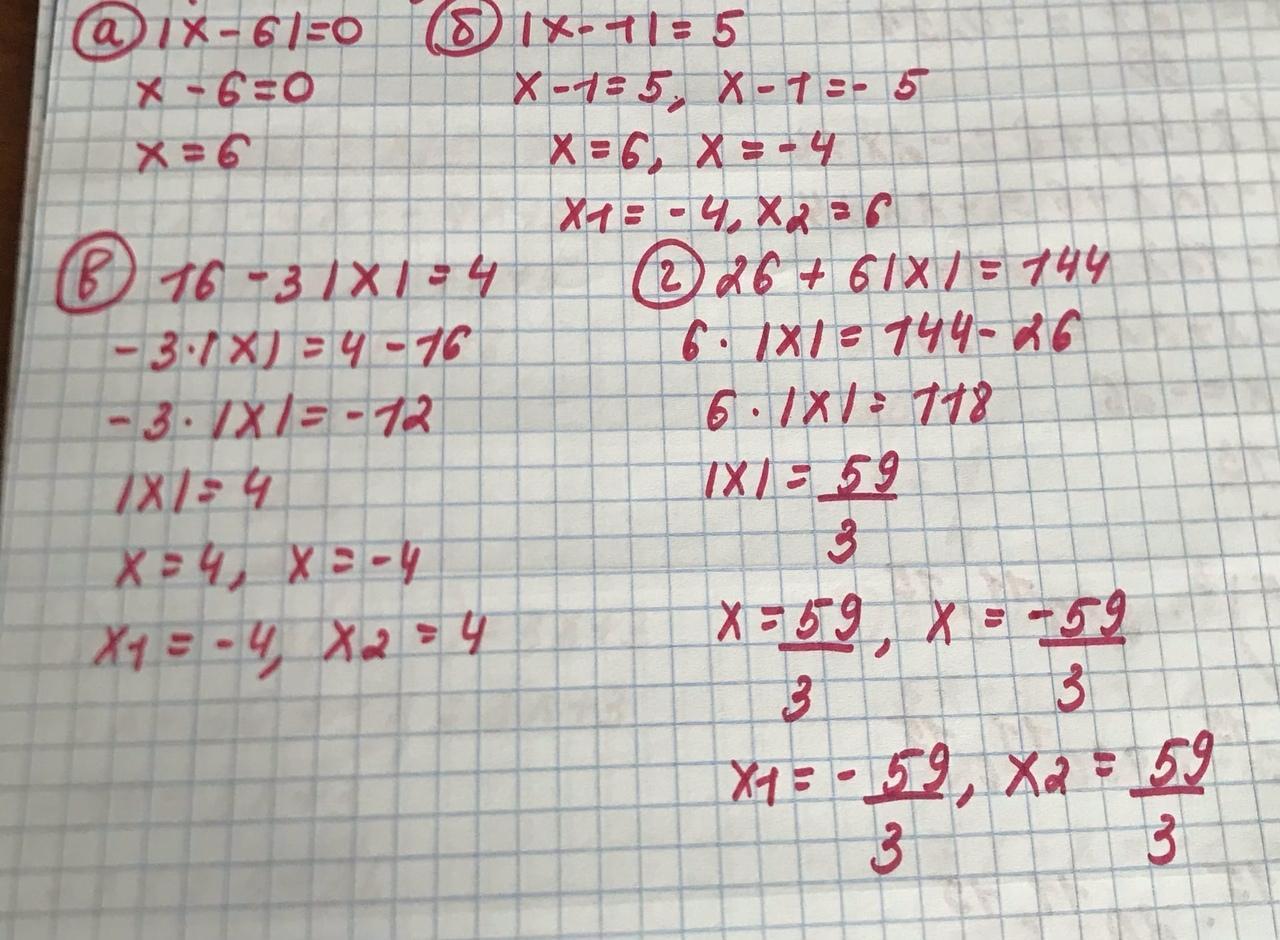 а) |x - 6| = 0
x - 6 = 0
x = 6
б) |x - 1| = 5
x - 1 = 5, x - 1 = - 5
x = 6, x = - 4
x1 = - 4, x2 = 6
в) 16 - 3|x| = 4
- 3 · |x| = 4 - 16
- 3 · |x| = - 12
|x| = 4
x = 4, x = - 4
x1 = - 4, x2 = 4
г) 26 + 6|x| = 144
6 · |x| = 144 - 26
6 · |x| = 118
|x| = 59/3
x = 59/3, x = -59/3
x1 = - 59/3, x2 = 59/3